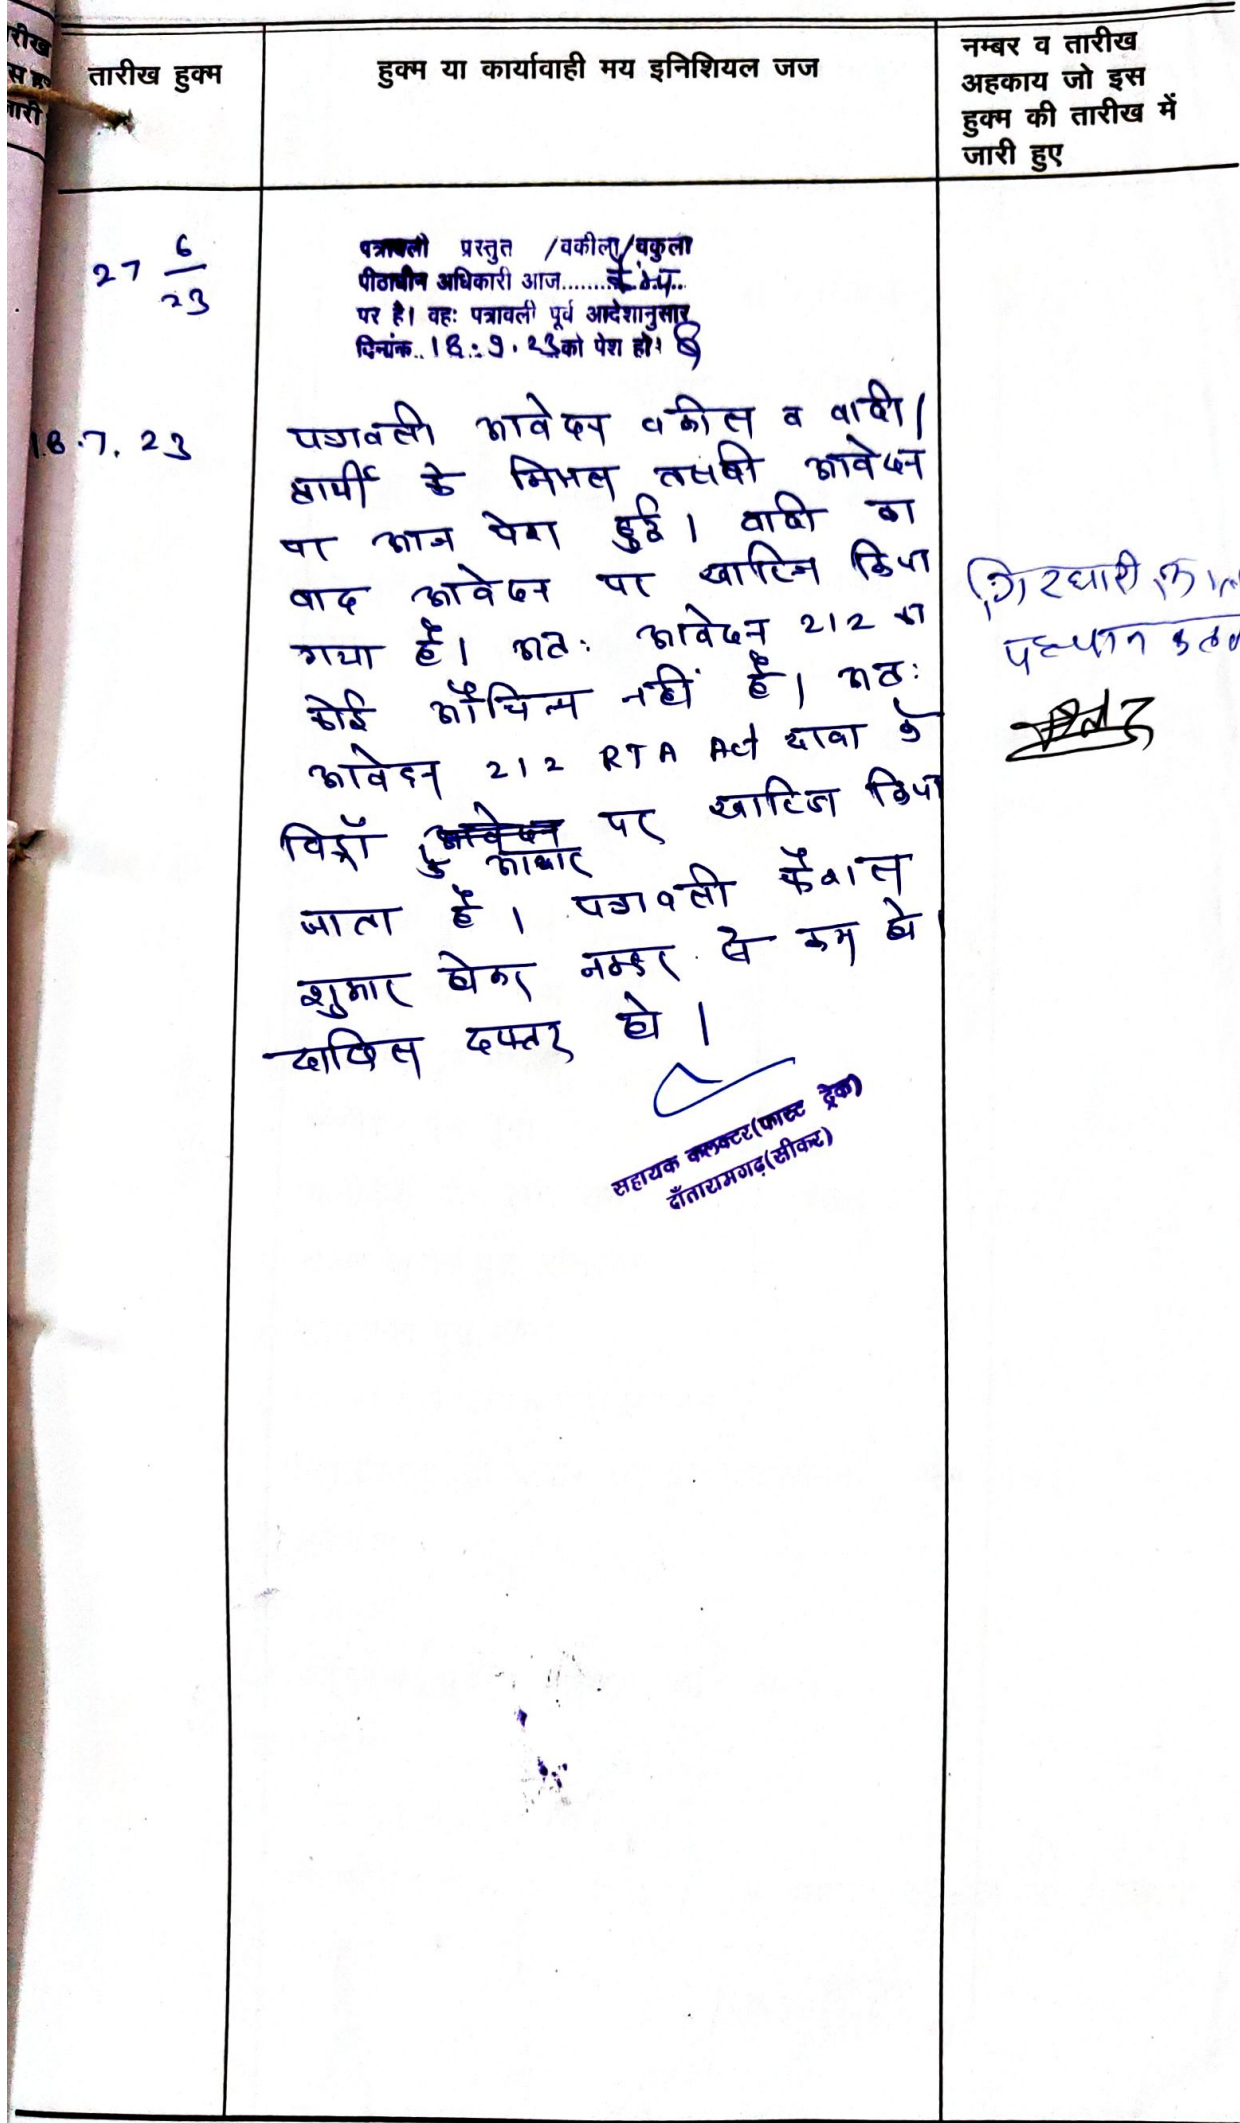 रीख
जारी
तारीख हुक्म
हुक्म या कार्यावाही मय इनिशियल जज
नम्बर व तारीख
अहकाय जो इस
हुक्म की तारीख में
जारी हुए
27 6/23
पत्रावली प्रस्तुत /वकीला/वकुला
पीठाधीन अधिकारी आज.........कैम्प..
पर है। वहः पत्रावली पूर्व आदेशानुसार
दिनांक..18.9.23को पेश हो।
18.7.23
पत्रावली आवेदन वकील व वादी/
प्रार्थी के तलबी आवेदन
पर आज पेश हुई। वादी का
वाद आवेदन पर खारिज किया
गया है। अतः आवेदन 212 का
कोई औचित्य नहीं है। अतः
आवेदन 212 RTA Act दावा के
विड्रॉ आवेदन पर खारिज किया
के आधार
जाता है। पत्रावली फैसल
शुमार होकर नम्बर से कम हो
दाखिल दफ्तर हो।
सहायक कलक्टर(फास्ट ट्रेक)
दाँतारामगढ़(सीकर)
गिरधारी